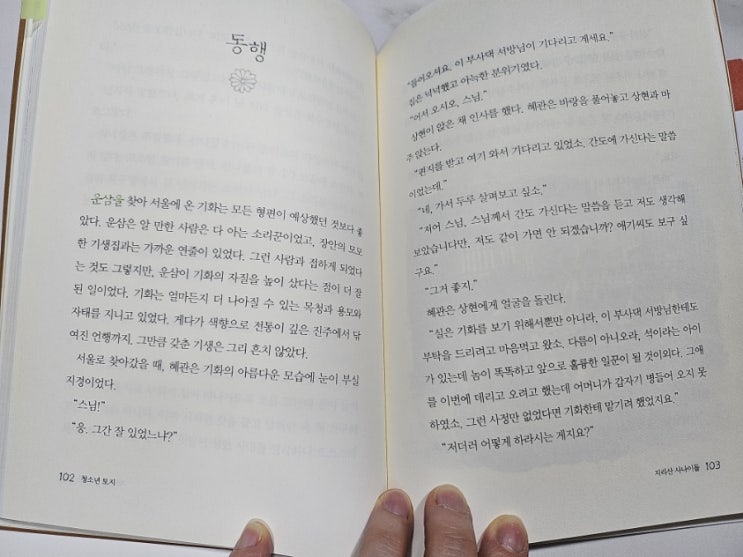 동행
운삼을 찾아 서울에 온 기화는 모든 형편이 예상했던 것보다 좋
았다. 운삼은 알 만한 사람은 다 아는 소리꾼이었고, 장안의 모모
한 기생집과는 가까운 연줄이 있었다. 그런 사람과 접하게 되었다
는 것도 그렇지만, 운삼이 기화의 자질을 높이 샀다는 점이 더 잘
된 일이었다. 기화는 얼마든지 더 나아질 수 있는 목청과 용모와
자태를 지니고 있었다. 게다가 색향으로 전통이 깊은 진주에서 닦
여진 언행까지, 그만큼 갖춘 기생은 그리 흔치 않았다.
서울로 찾아갔을 때, 혜관은 기화의 아름다운 모습에 눈이 부실
지경이었다.
"스님!"
"응. 그간 잘 있었느냐?"
102 청소년 토지
"들어오시요. 이 부사댁 서방님이 기다리고 계세요."
집은 넉넉했고 아늑한 분위기였다.
"어서 오시오, 스님."
상현이 앉은 채 인사를 했다. 혜관은 바랑을 풀어놓고 상현과 마
주 앉는다.
"편지를 받고 여기 와서 기다리고 있었소. 간도에 가신다는 말씀
이었는데."
"네, 가서 두루 살펴보고 싶소."
"저어 스님, 스님께서 간도 가신다는 말씀을 듣고 저도 생각해
보았습니다만, 저도 같이 가면 안 되겠습니까? 애기씨도 보구 싶
구요."
"그거 좋지."
혜관은 상현에게 얼굴을 돌린다.
"실은 기화를 보기 위해서뿐만 아니라, 이 부사댁 서방님한테도
부탁을 드리려고 마음먹고 왔소. 다름이 아니오라, 석이라는 아이
가 있는데 놈이 똑똑하고 앞으로 훌륭한 일꾼이 될 것이외다. 그애
를 이번에 데리고 오려고 했는데 어머니가 갑자기 병들어 오지 못
하였소. 그런 사정만 없었다면 기화한테 맡기려 했었지요."
"저더러 어떻게 하라시는 게지요?"
지리산 사나이들 103